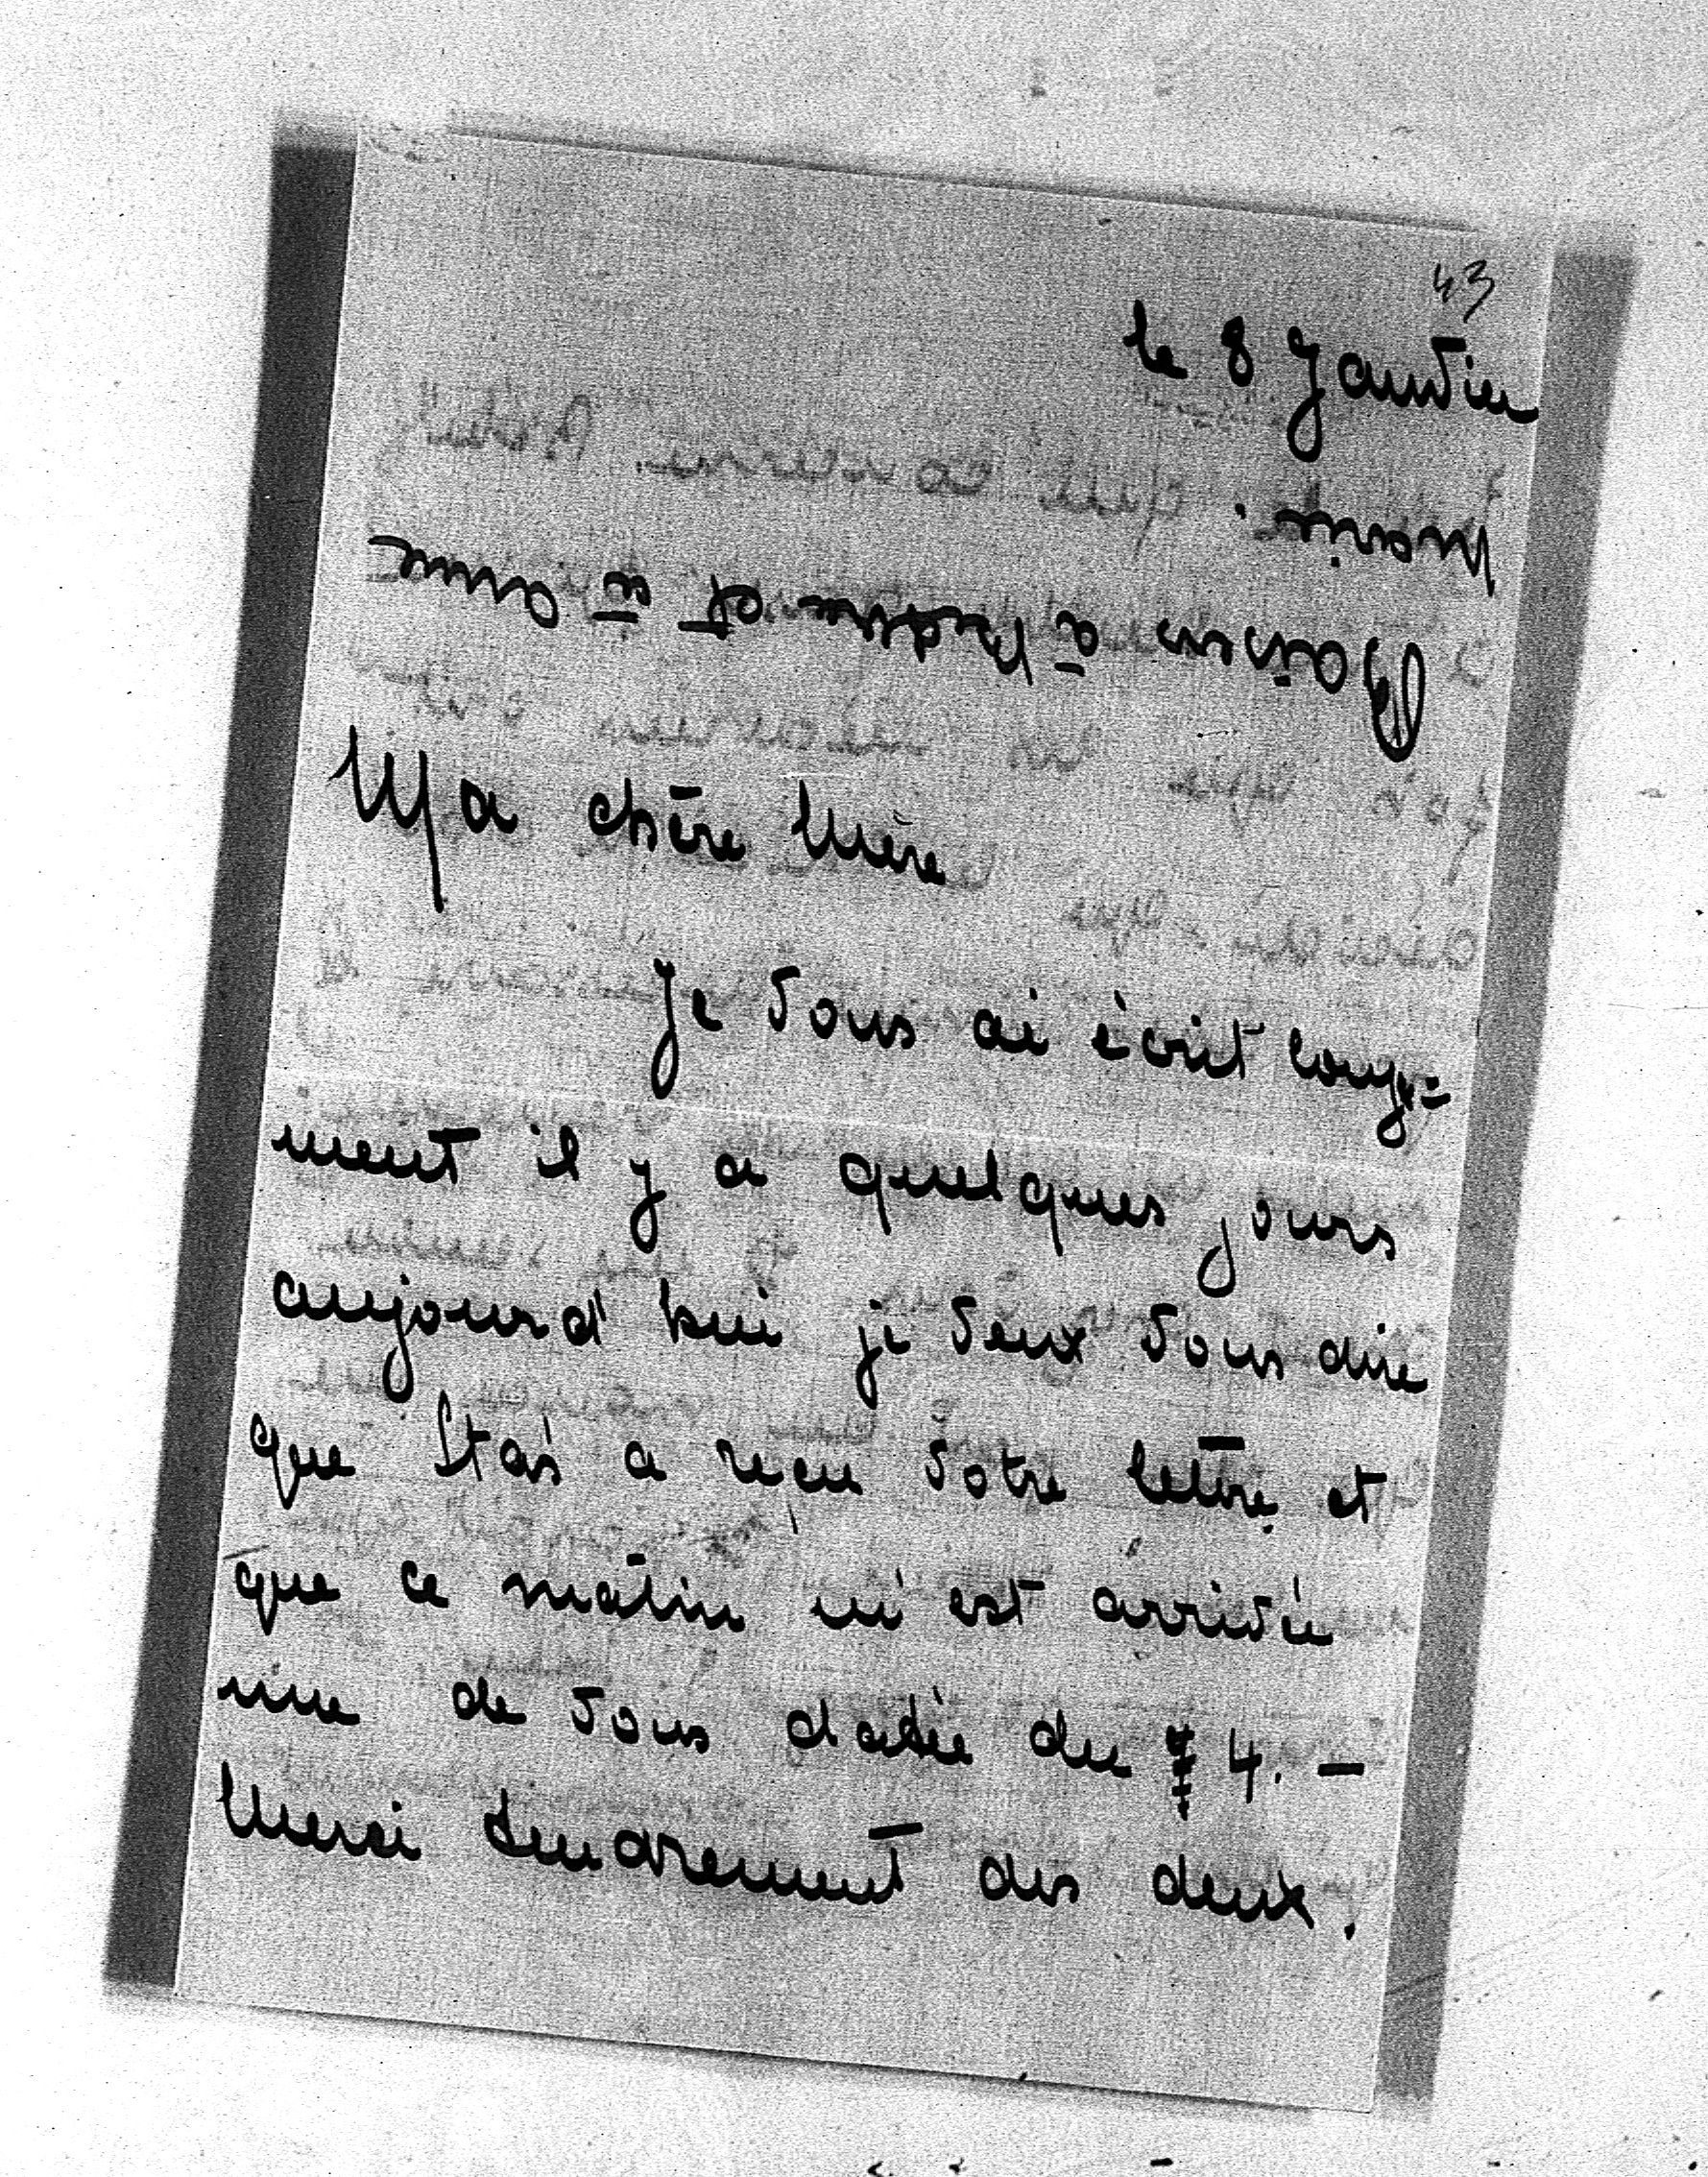 43
le 8 Janvier
Ma chère Mère
Je vous ai écrit longue=
ment il y a quelques jours
aujourd'hui je veux vous dire
que Stas a reçu votre lettre et
que ce matin m'est arrivée
une de vous datée du 4. –
Merci tendrement des deux.
Baisers à et à Anne
Marie.